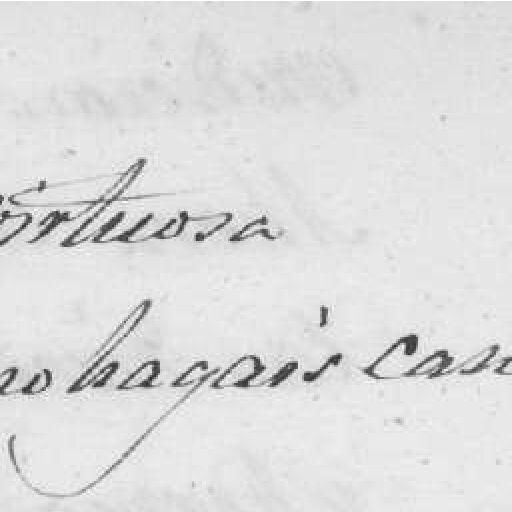 virtuosa
no hagais can